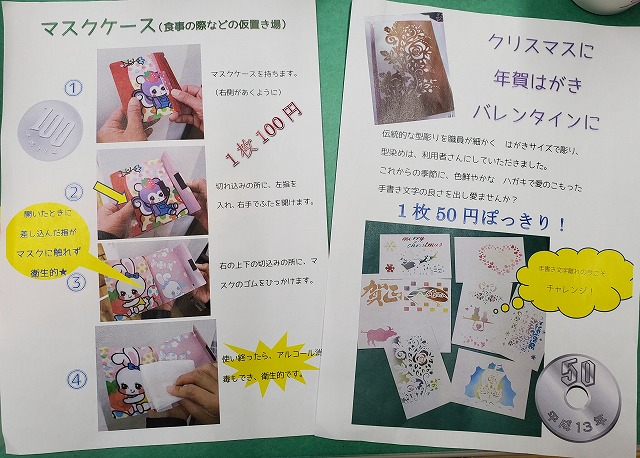 マスクケース(食事の際などの仮置き場)
①
マスクケースを持ちます。
(右側があくように)
100
1枚100円
②
切れ込みの所に、左指を
入れ、右手でふたを開けます。
開いたときに
差し込んだ指が
マスクに触れず
衛生的★
③
右の上下の切込みの所に、マ
スクのゴムをひっかけます。
④
使い終ったら、アルコール消
毒もでき、衛生的です。
クリスマスに
年賀はがき
バレンタインに
伝統的な型彫りを職員が細かく はがきサイズで彫り、
型染めは、利用者さんにしていただきました。
これからの季節に、色鮮やかな ハガキで愛のこもった
手書き文字の良さを出し愛ませんか？
1枚50円ぽっきり！
merry
christmas
賀正
手書き文字離れの今こそ
チャレンジ！
50
平成13年